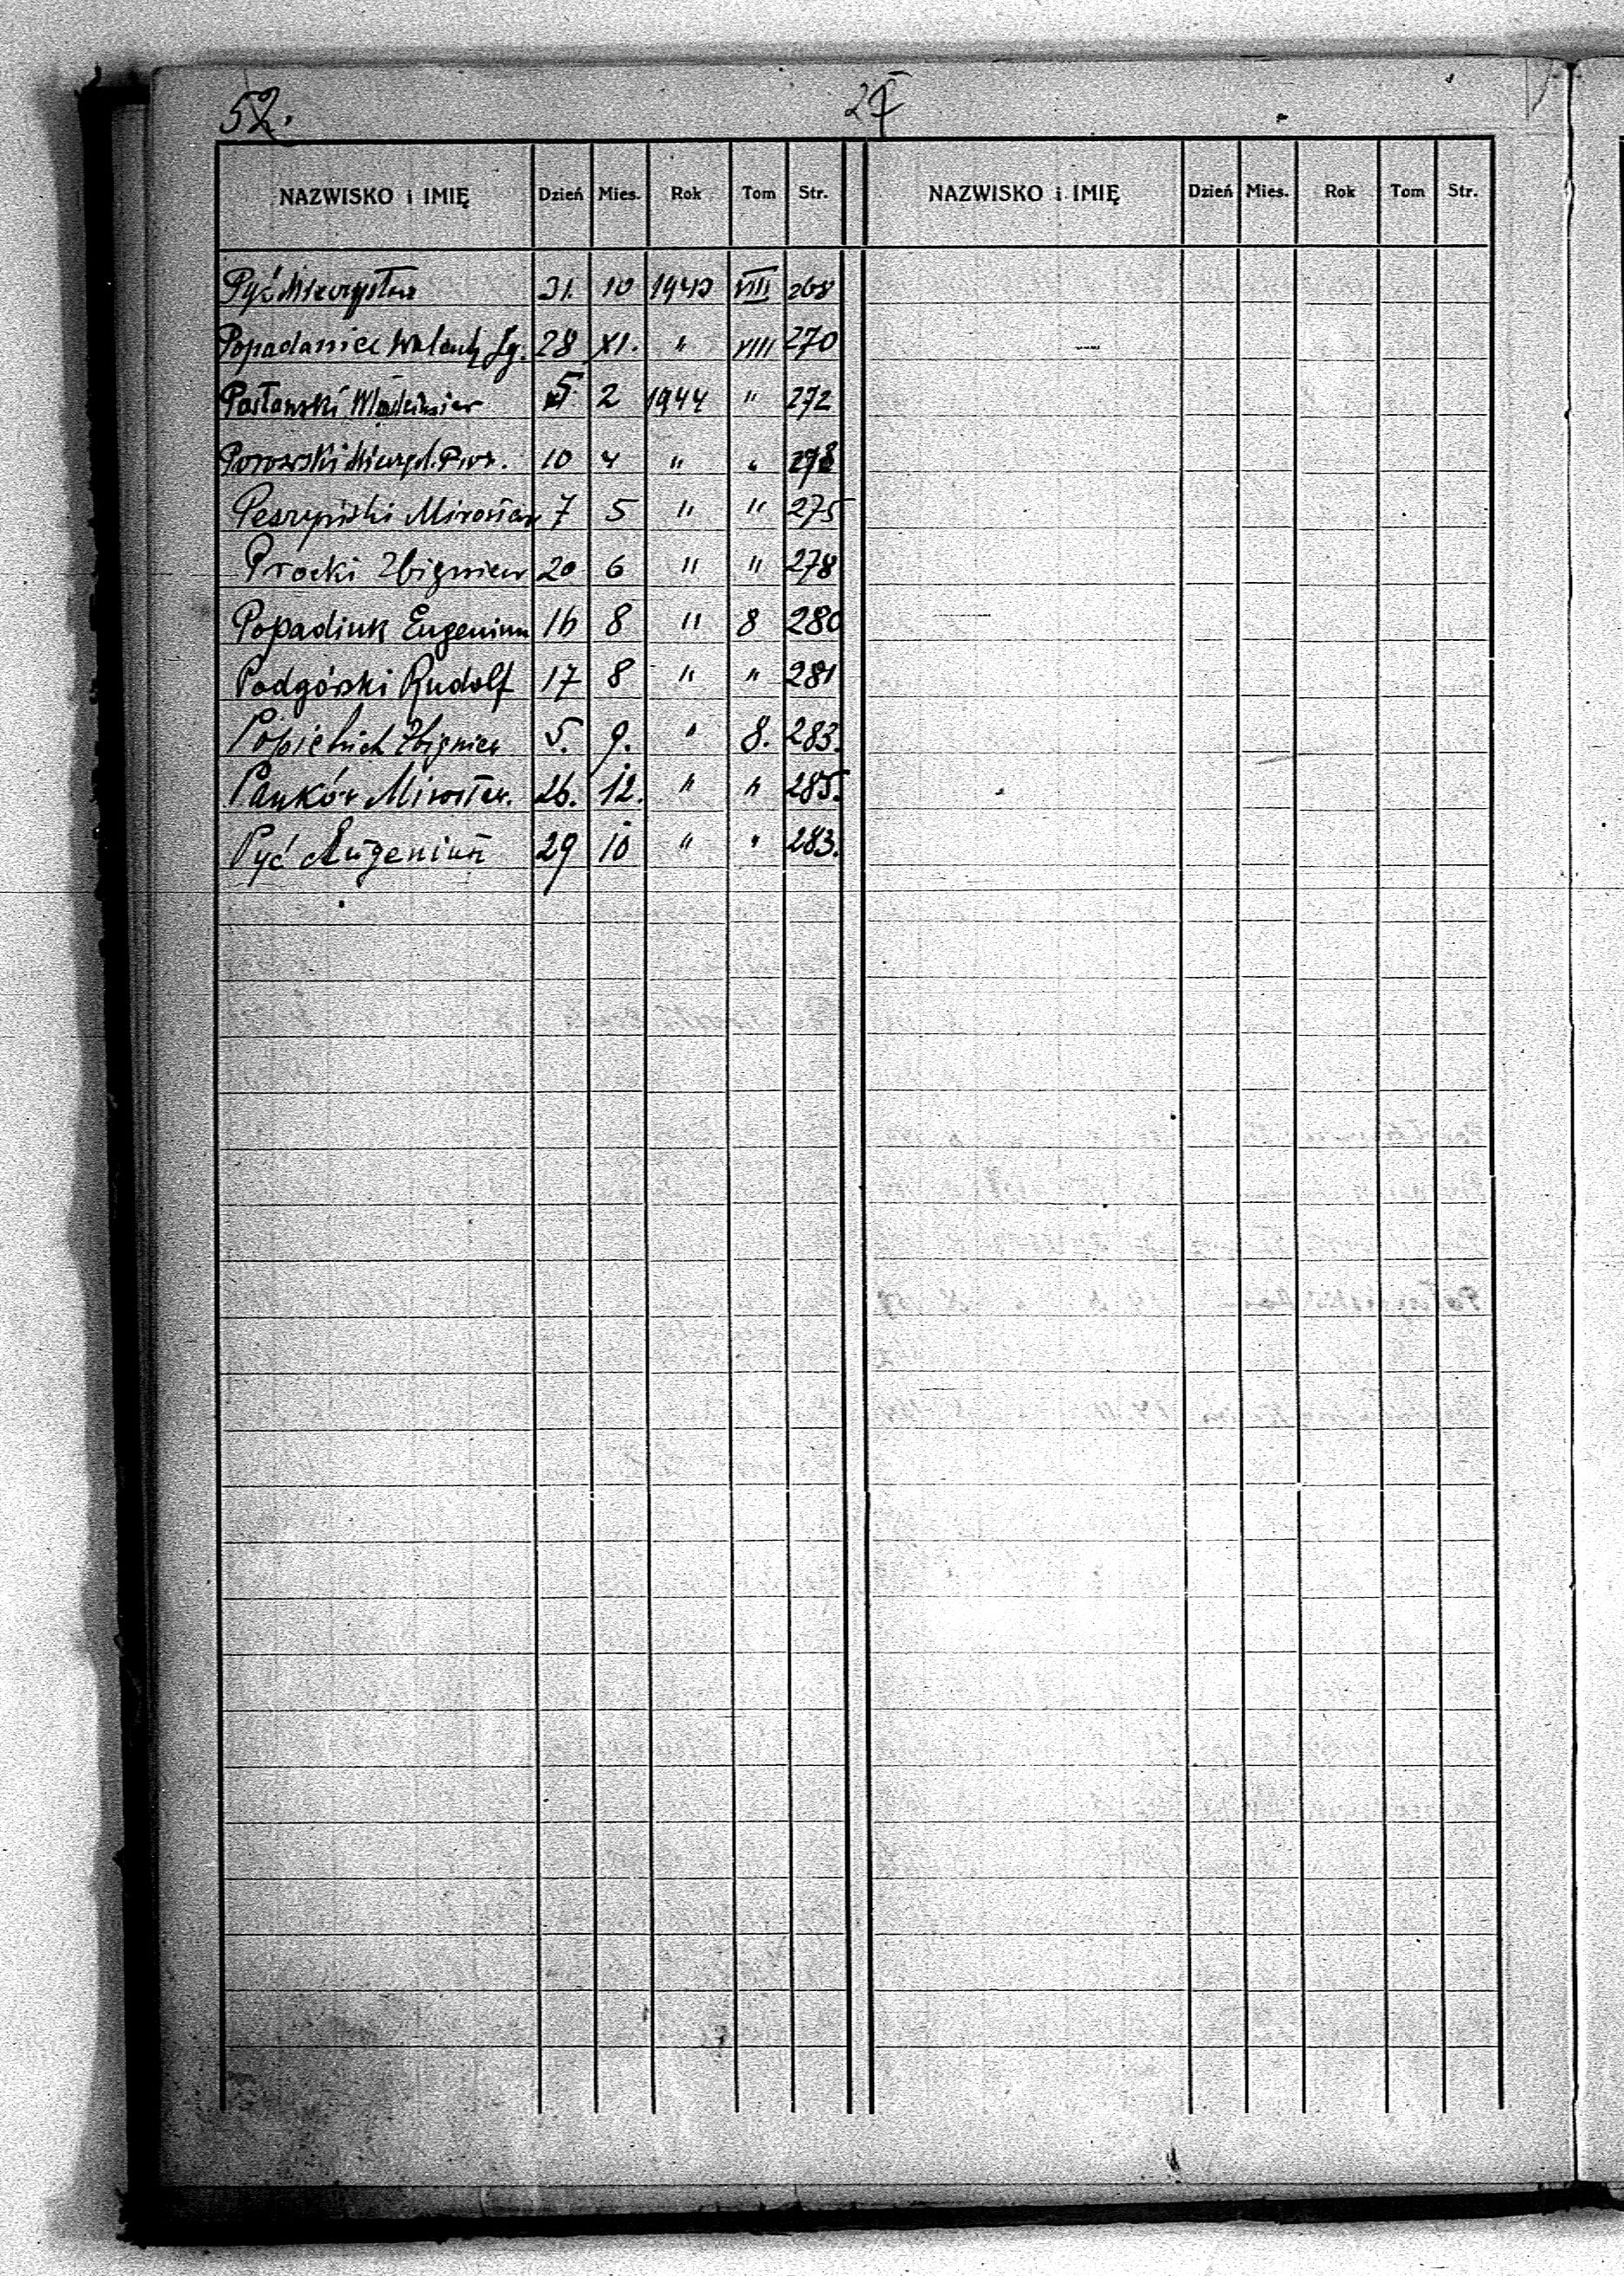 52.
NAZWISKO i IMIĘ Dzień Mies. Rok Tom Str. NAZWISKO i IMIĘ Dzień Mies. Rok Tom Str.
Pyć Mieczysław 31. 10 1943 VIII 268
Popadaniec 28 XI. " VIII 270
5 2 1944 " 272
Porowski 10 4 " "
Mirosław 7 5 " " 275
Procki Zbigniew 20 6 " " 278
Popadiuk Eugeniusz 16 8 " 8 280
Podgórski Rudolf 17 8 " " 281
Zbigniew 5. 9. " 8. 283.
Pańków Mirosław. 26. 12. " " 285.
Pyć Eugeniusz 29 10 " " 283.